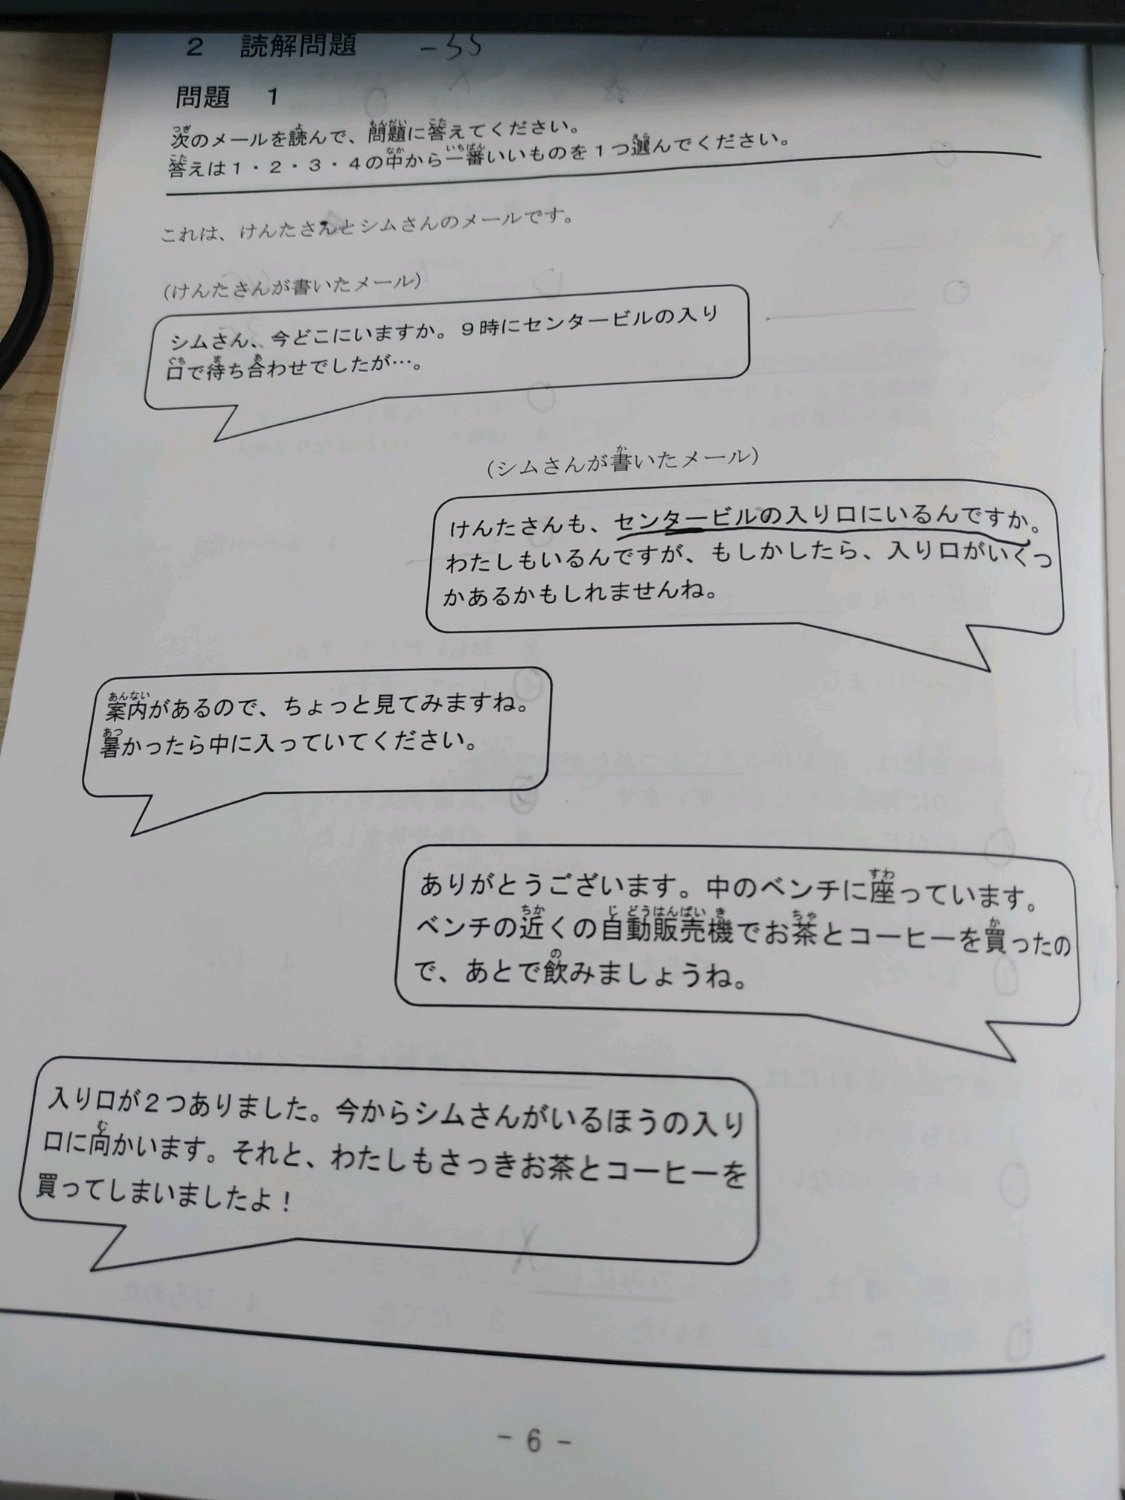 2 読解問題 -35
問題 1
次のメールを読んで、問題に答えてください。
答えは1・2・3・4の中から一番いいものを1つ選んでください。
これは、けんたさんとシムさんのメールです。
(けんたさんが書いたメール)
シムさん、今どこにいますか。9時にセンタービルの入り
口で待ち合わせでしたが…。
(シムさんが書いたメール)
けんたさんも、センタービルの入り口にいるんですか。
わたしもいるんですが、もしかしたら、入り口がいくつ
かあるかもしれませんね。
案内があるので、ちょっと見てみますね。
暑かったら中に入っていてください。
ありがとうございます。中のベンチに座っています。
ベンチの近くの自動販売機でお茶とコーヒーを買ったの
で、あとで飲みましょうね。
入り口が2つありました。今からシムさんがいるほうの入り
口に向かいます。それと、わたしもさっきお茶とコーヒーを
買ってしまいましたよ！
- 6 -